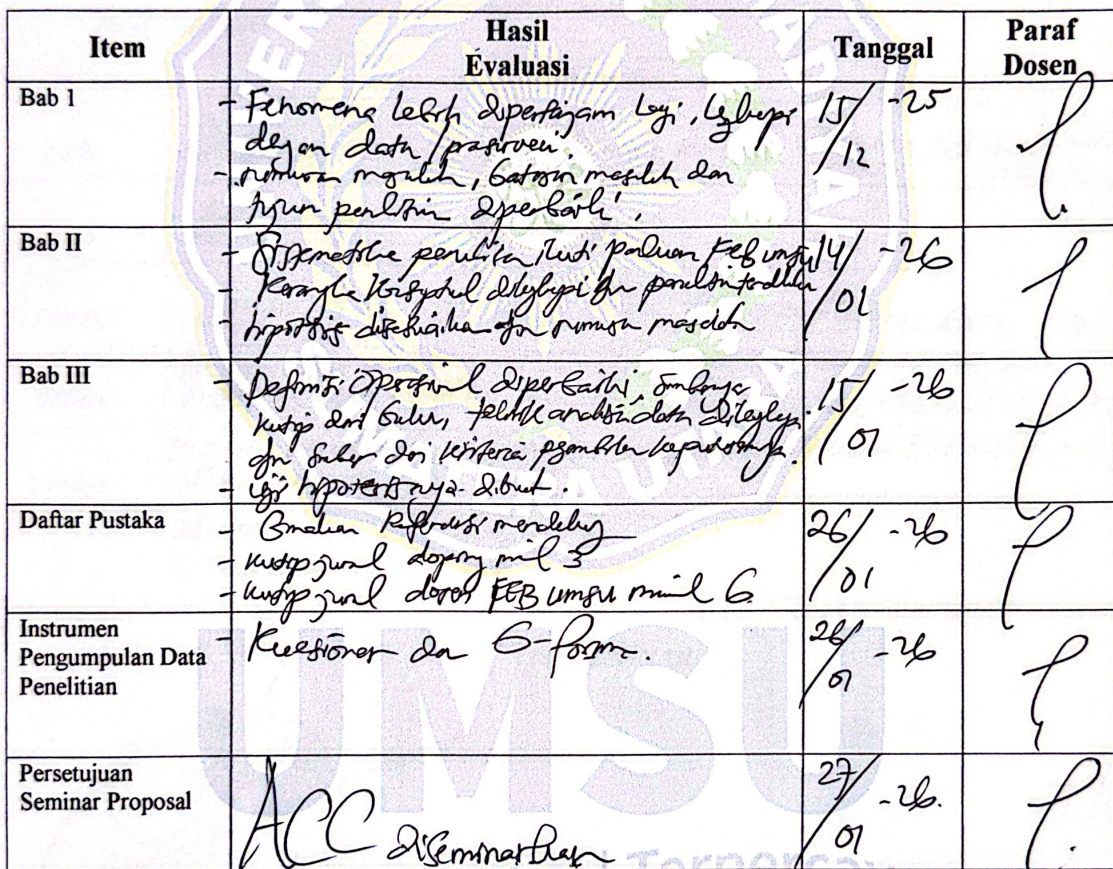 Item
Hasil
Evaluasi
Tanggal
Paraf
Dosen
Bab 1
- Fenomena lebih dipertajam lagi, lengkapi
dengan data prasurvei.
- rumusan masalah, batasan masalah dan
tujuan penelitian diperbaiki.
15/12 -25
Bab II
- Sistematika penulisan ikuti panduan FEB UMSU
- Kerangka konseptual dilengkapi dgn penelitian terdahulu
- hipotesis disesuaikan dgn rumusan masalah
14/01 -26
Bab III
- Definisi Operasional diperbaiki
kutip dari buku, teknik analisis data dilengkapi
dgn
dan kriteria pengambilan keputusannya.
- uji hipotesisnya dibuat.
15/01 -26
Daftar Pustaka
- Gunakan mendeley
- kutip jurnal doping mnl 3
- kutip jurnal dosen FEB UMSU miml 6
26/01 -26
Instrumen
Pengumpulan Data
Penelitian
- Kuesioner dan G-form.
26/01 -26
Persetujuan
Seminar Proposal
ACC diseminarkan
27/01 -26.
UMSU